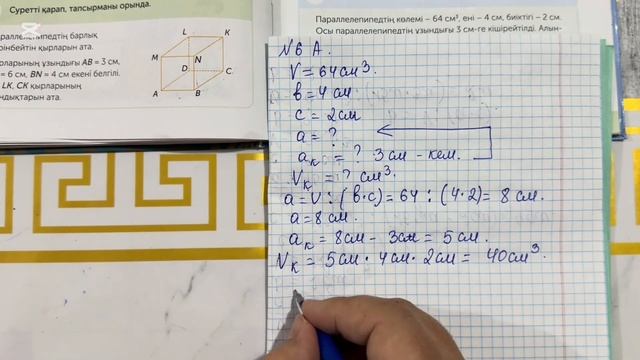 Суретті қарап, тапсырманы орында.
араллелепипедтің барлық
рінбейтін қырларын ата.
рларының ұзындығы AB = 3 см,
= 6 см, BN = 4 см екені белгілі.
LK, CK қырларының
ндықтарын ата.
L K
M N
D C
A B
Параллелепипедтің көлемі – 64 см³, ені – 4 см, биіктігі – 2 см.
Осы параллелепипедтің ұзындығы 3 см-ге кішірейтілді. Алын-
N 6 A.
V = 64 см³.
в = 4 см
c = 2 см
a = ?
aк = ? 3 см - кем.
Vк = ? см³.
a = V : (в·c) = 64 : (4·2) = 8 см.
a = 8 см.
aк = 8 см - 3 см = 5 см.
Vк = 5 см · 4 см · 2 см = 40 см³.